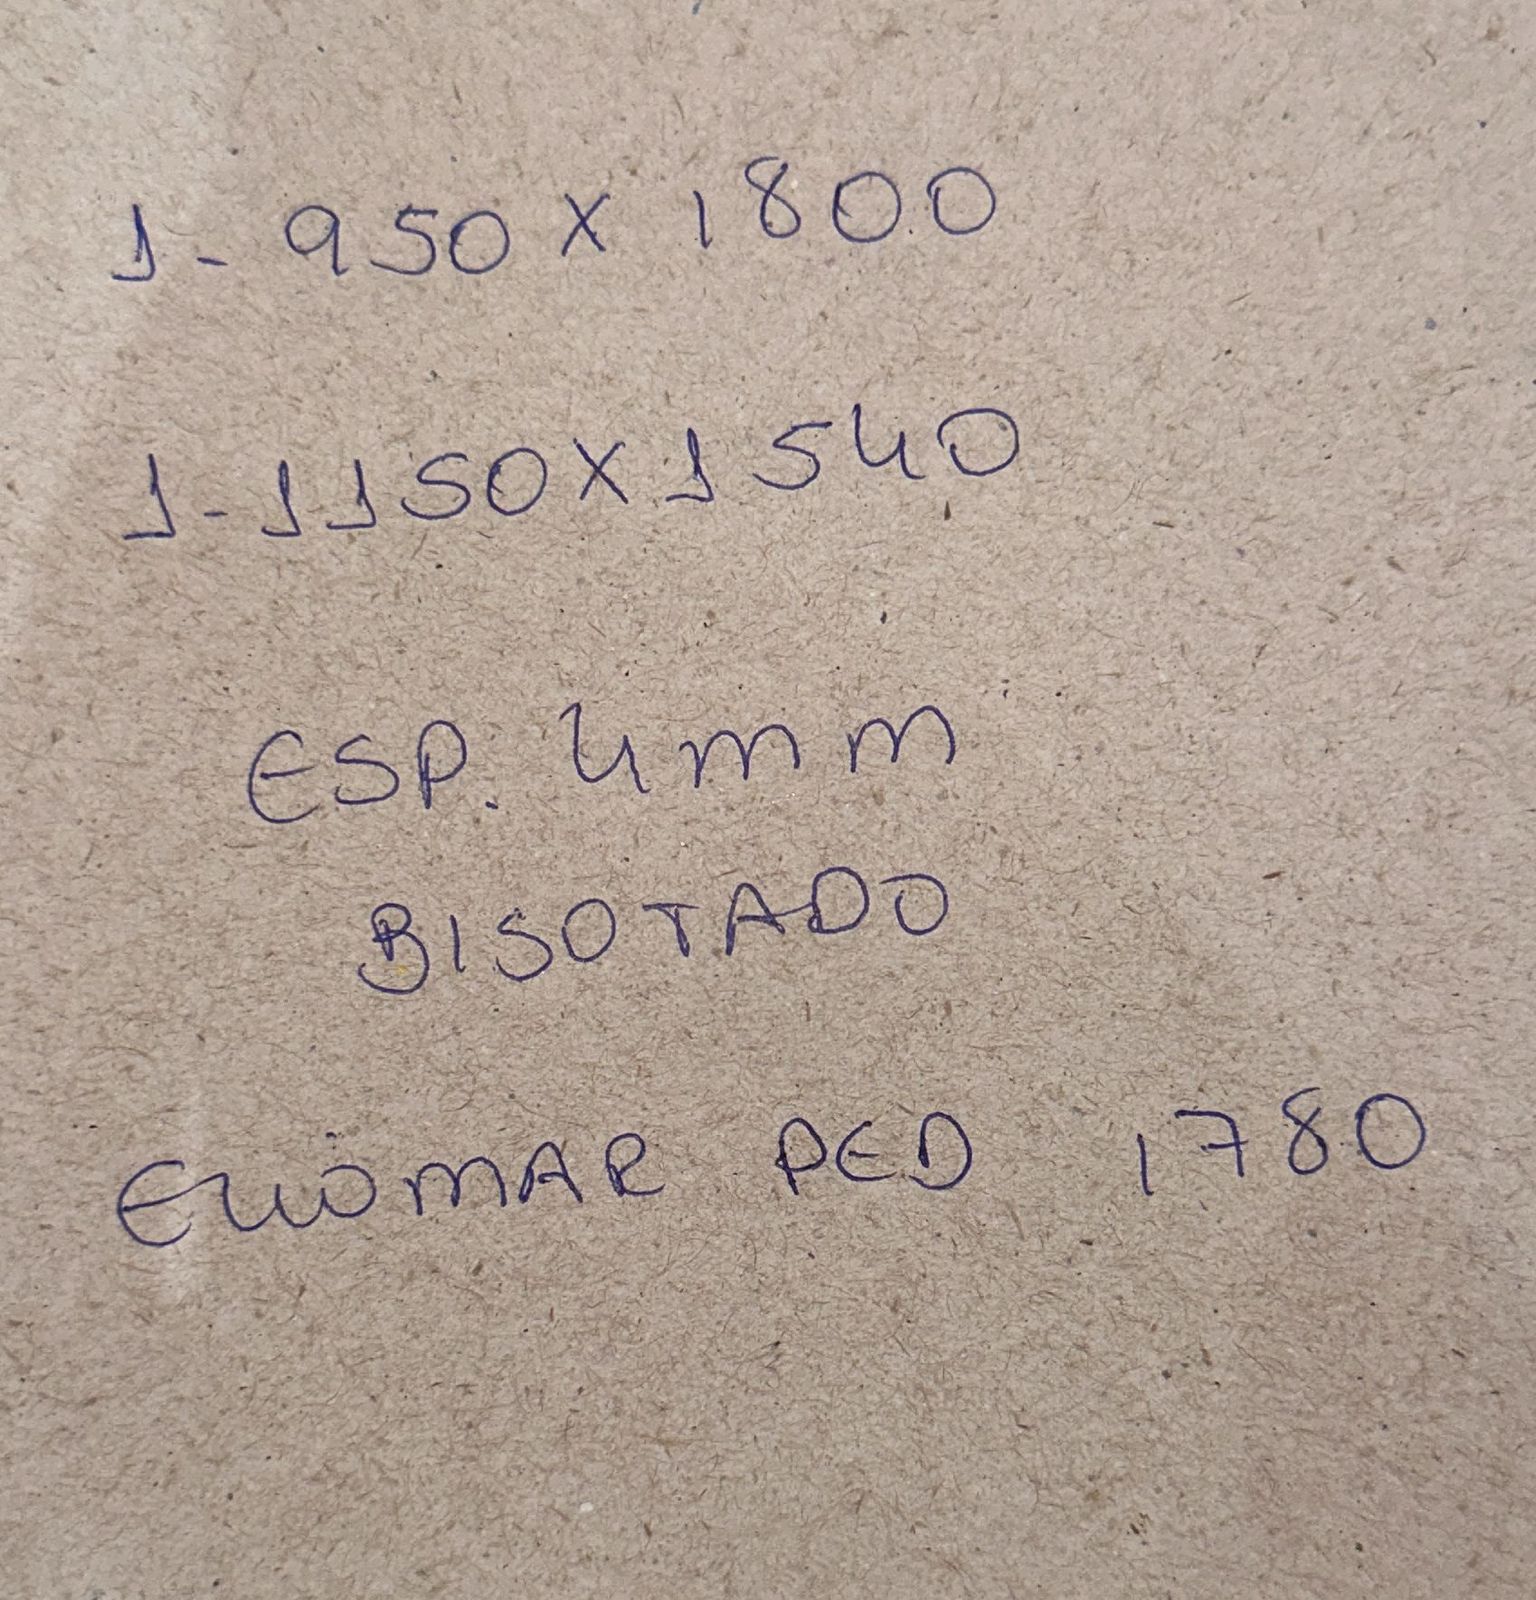 1- 950 X 1800
1- 1150 X 1540
ESP. 4mm
BISOTADO
ELIOMAR PED 1780